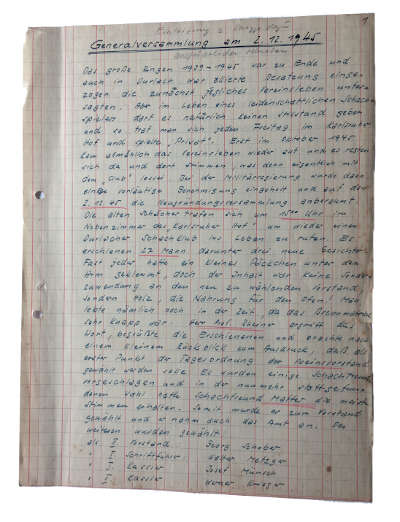 1
Generalversammlung am 2.12.1945
Das große Ringen 1939-1945 war zu Ende und
auch in Durlach war alliierte Besatzung einge-
zogen die zunächst jegliches Vereinsleben unter-
sagten. Aber im Leben eines leidenschaftlichen Schach-
spielers darf es natürlich keinen Stillstand geben
und so traf man sich jeden Freitag im Karlsruher
Hof und spielte "Privat". Erst im Oktober 1945
kam allmählich das Vereinsleben wieder auf und es regten
sich da und dort Stimmen, was denn eigentlich mit
dem Club los sei. Bei der Militärregierung wurde dann
eine vorläufige Genehmigung eingeholt und auf den
2.12.45 die Neugründungsversammlung anberaumt.
Die alten Schächer trafen sich um Uhr im
Nebenzimmer des Karlsruher Hof um wieder einen
Durlacher Schachclub ins Leben zu rufen. Es
erschienen 27 Mann darunter drei neue Gesichter.
Fast jeder hatte ein kleines Päckchen unter den
Arm geklemmt, doch der Inhalt war keine Sonder-
zuwendung an den neu zu wählenden Vorstand,
sondern Holz die Nahrung für den Ofen! Man
lebte nämlich noch in der Zeit, da das Brennmaterial
sehr knapp war. Herr ergriff das
Wort, begrüßte die Erschienenen und brachte nach
einem kleinen Rückblick zum Ausdruck, daß als
erster Punkt der Tagesordnung der Vereinsvorstand
gewählt werden solle. Es wurden einige Schachfreunde
vorgeschlagen und in der nunmehr stattgefun-
denen Wahl hatte Schachfreund die meisten
Stimmen erhalten. Somit wurde er zum Vorstand
gewählt und er nahm auch das Amt an. Des
weiteren wurden gewählt
als II. Vorstand: Georg Schober
" I Schriftführer: Walter Metzger
" I Cassier Josef Münch
" II Cassier Werner